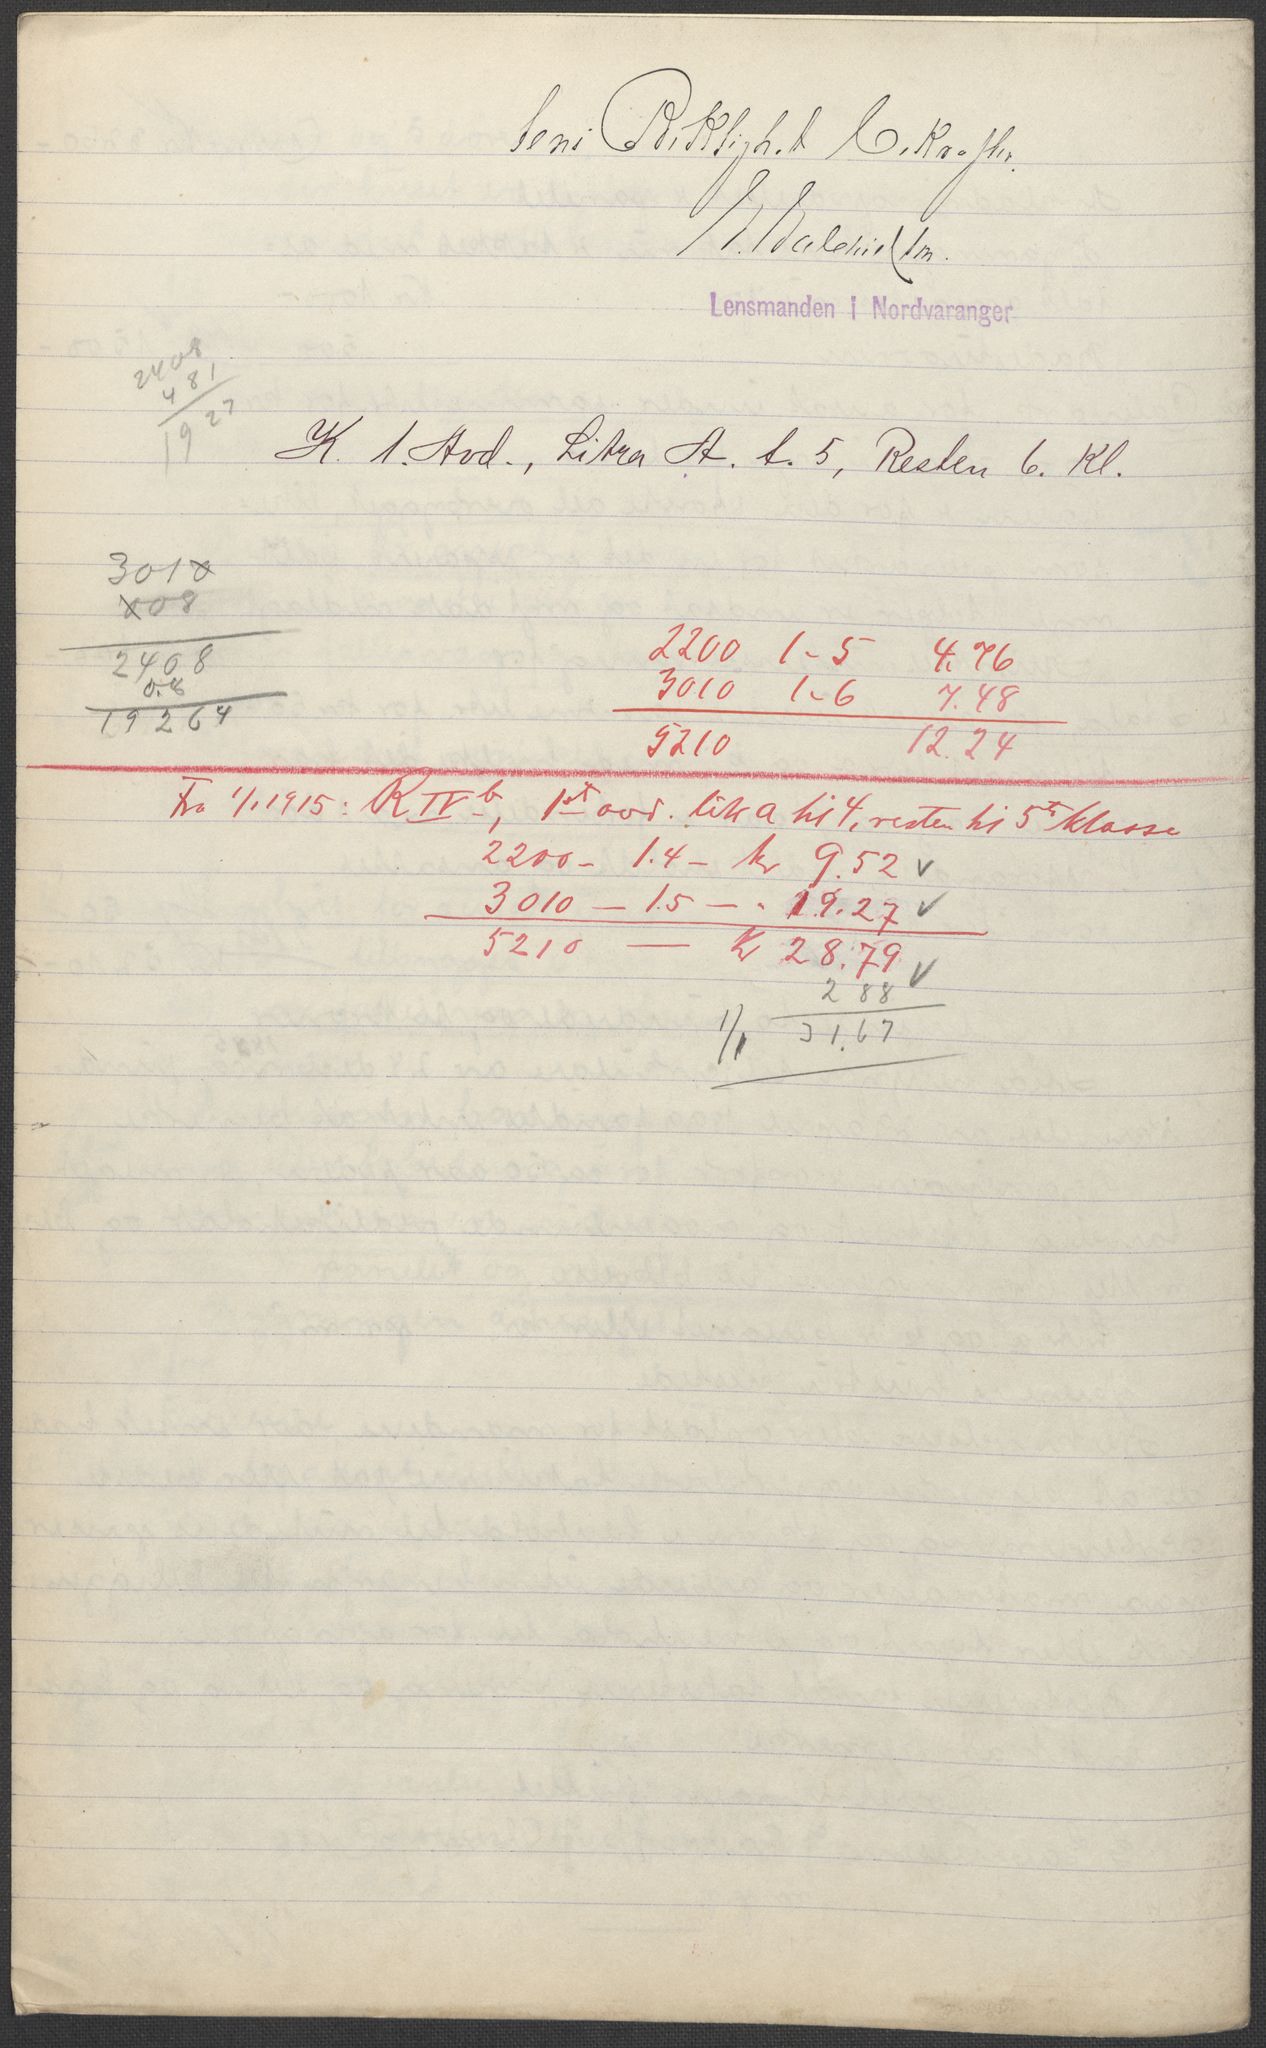 Lensmanden i Nordvaranger
2408
481
1927
K. 1. Avd., Litra A. t. 5, Resten 6. Kl.
3010
008
2408
0.8
19264
2200 1-5 4.76
3010 1-6 7.48
5210 12.24
Fra 1/1 1915: K IV b, 1st avd. litra a til 4, resten til 5te klasse
2200 - 1.4 - kr 9.52 ✓
3010 - 1.5 - - 19.27 ✓
5210 — kr 28.79 ✓
2 88
1/1 31.67